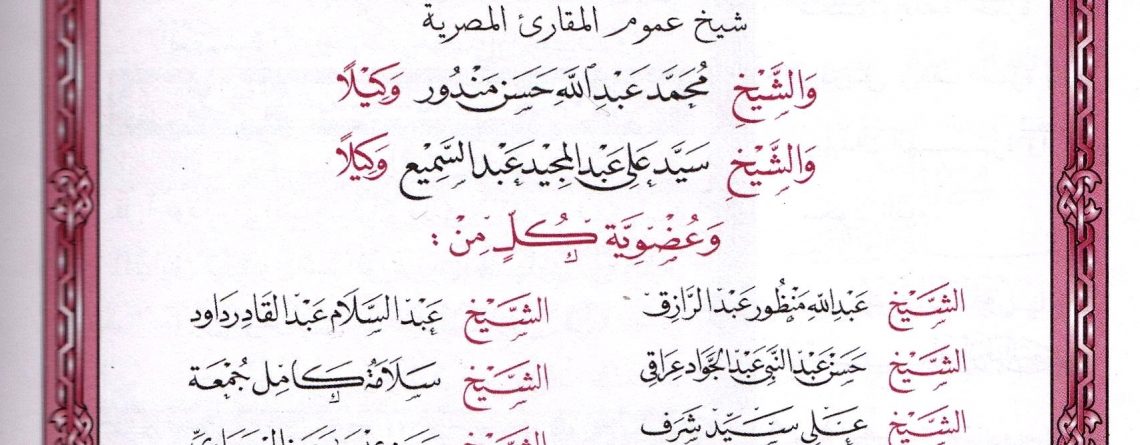 شيخ عموم المقارئ المصرية
وَالشَّيْخِ مُحَمَّد عَبْد اللَّه حَسَن مَنْدُور وَكِيْلًا
وَالشَّيْخِ سَيَّد عَلِي عَبْد المَجِيْد عَبْد السَّمِيْع وَكِيْلًا
وَعُضْوِيَّة كُلٍّ مِنْ :
الشَّيْخ عَبْد اللَّه مَنْظُور عَبْد الرَّازِق الشَّيْخ عَبْد السَّلَام عَبْد القَادِر دَاوُد
الشَّيْخ حَسَن عَبْد النَّبِي عَبْد الجَوَّاد عِرَاقِي الشَّيْخ سَلَامَة كَامِل جُمْعَة
الشَّيْخ عَلِي سَيِّد شَرَف الشَّيْخ